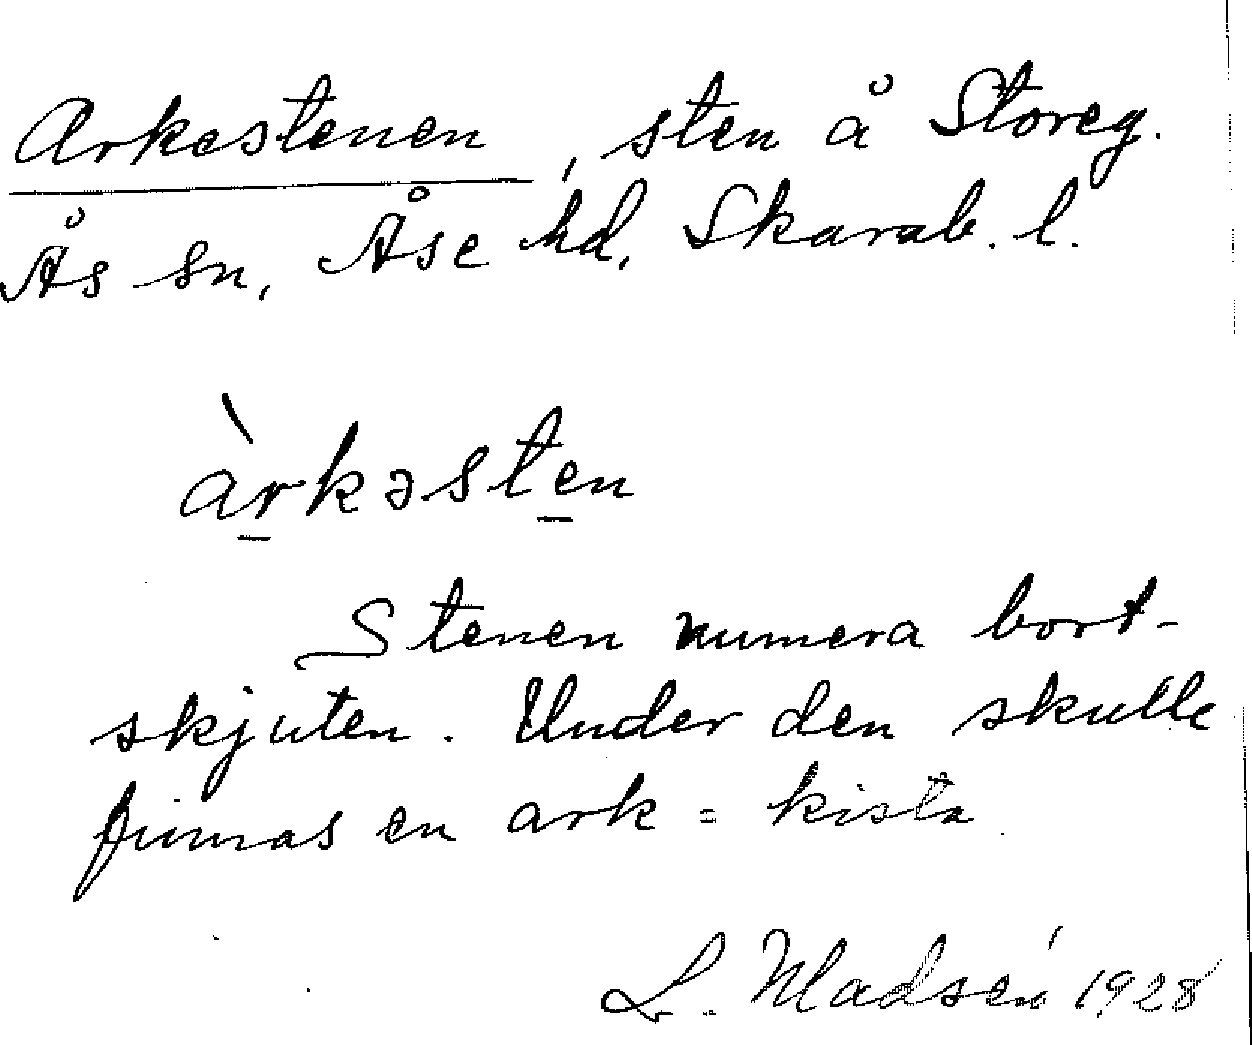 Arkestenen, sten å Storeg.
Ås sn, Åse hd, Skarab. l.
àrkəsten
Stenen numera bort-
skjuten. Under den skulle
finnas en ark = kista.
L. Madsén 1928